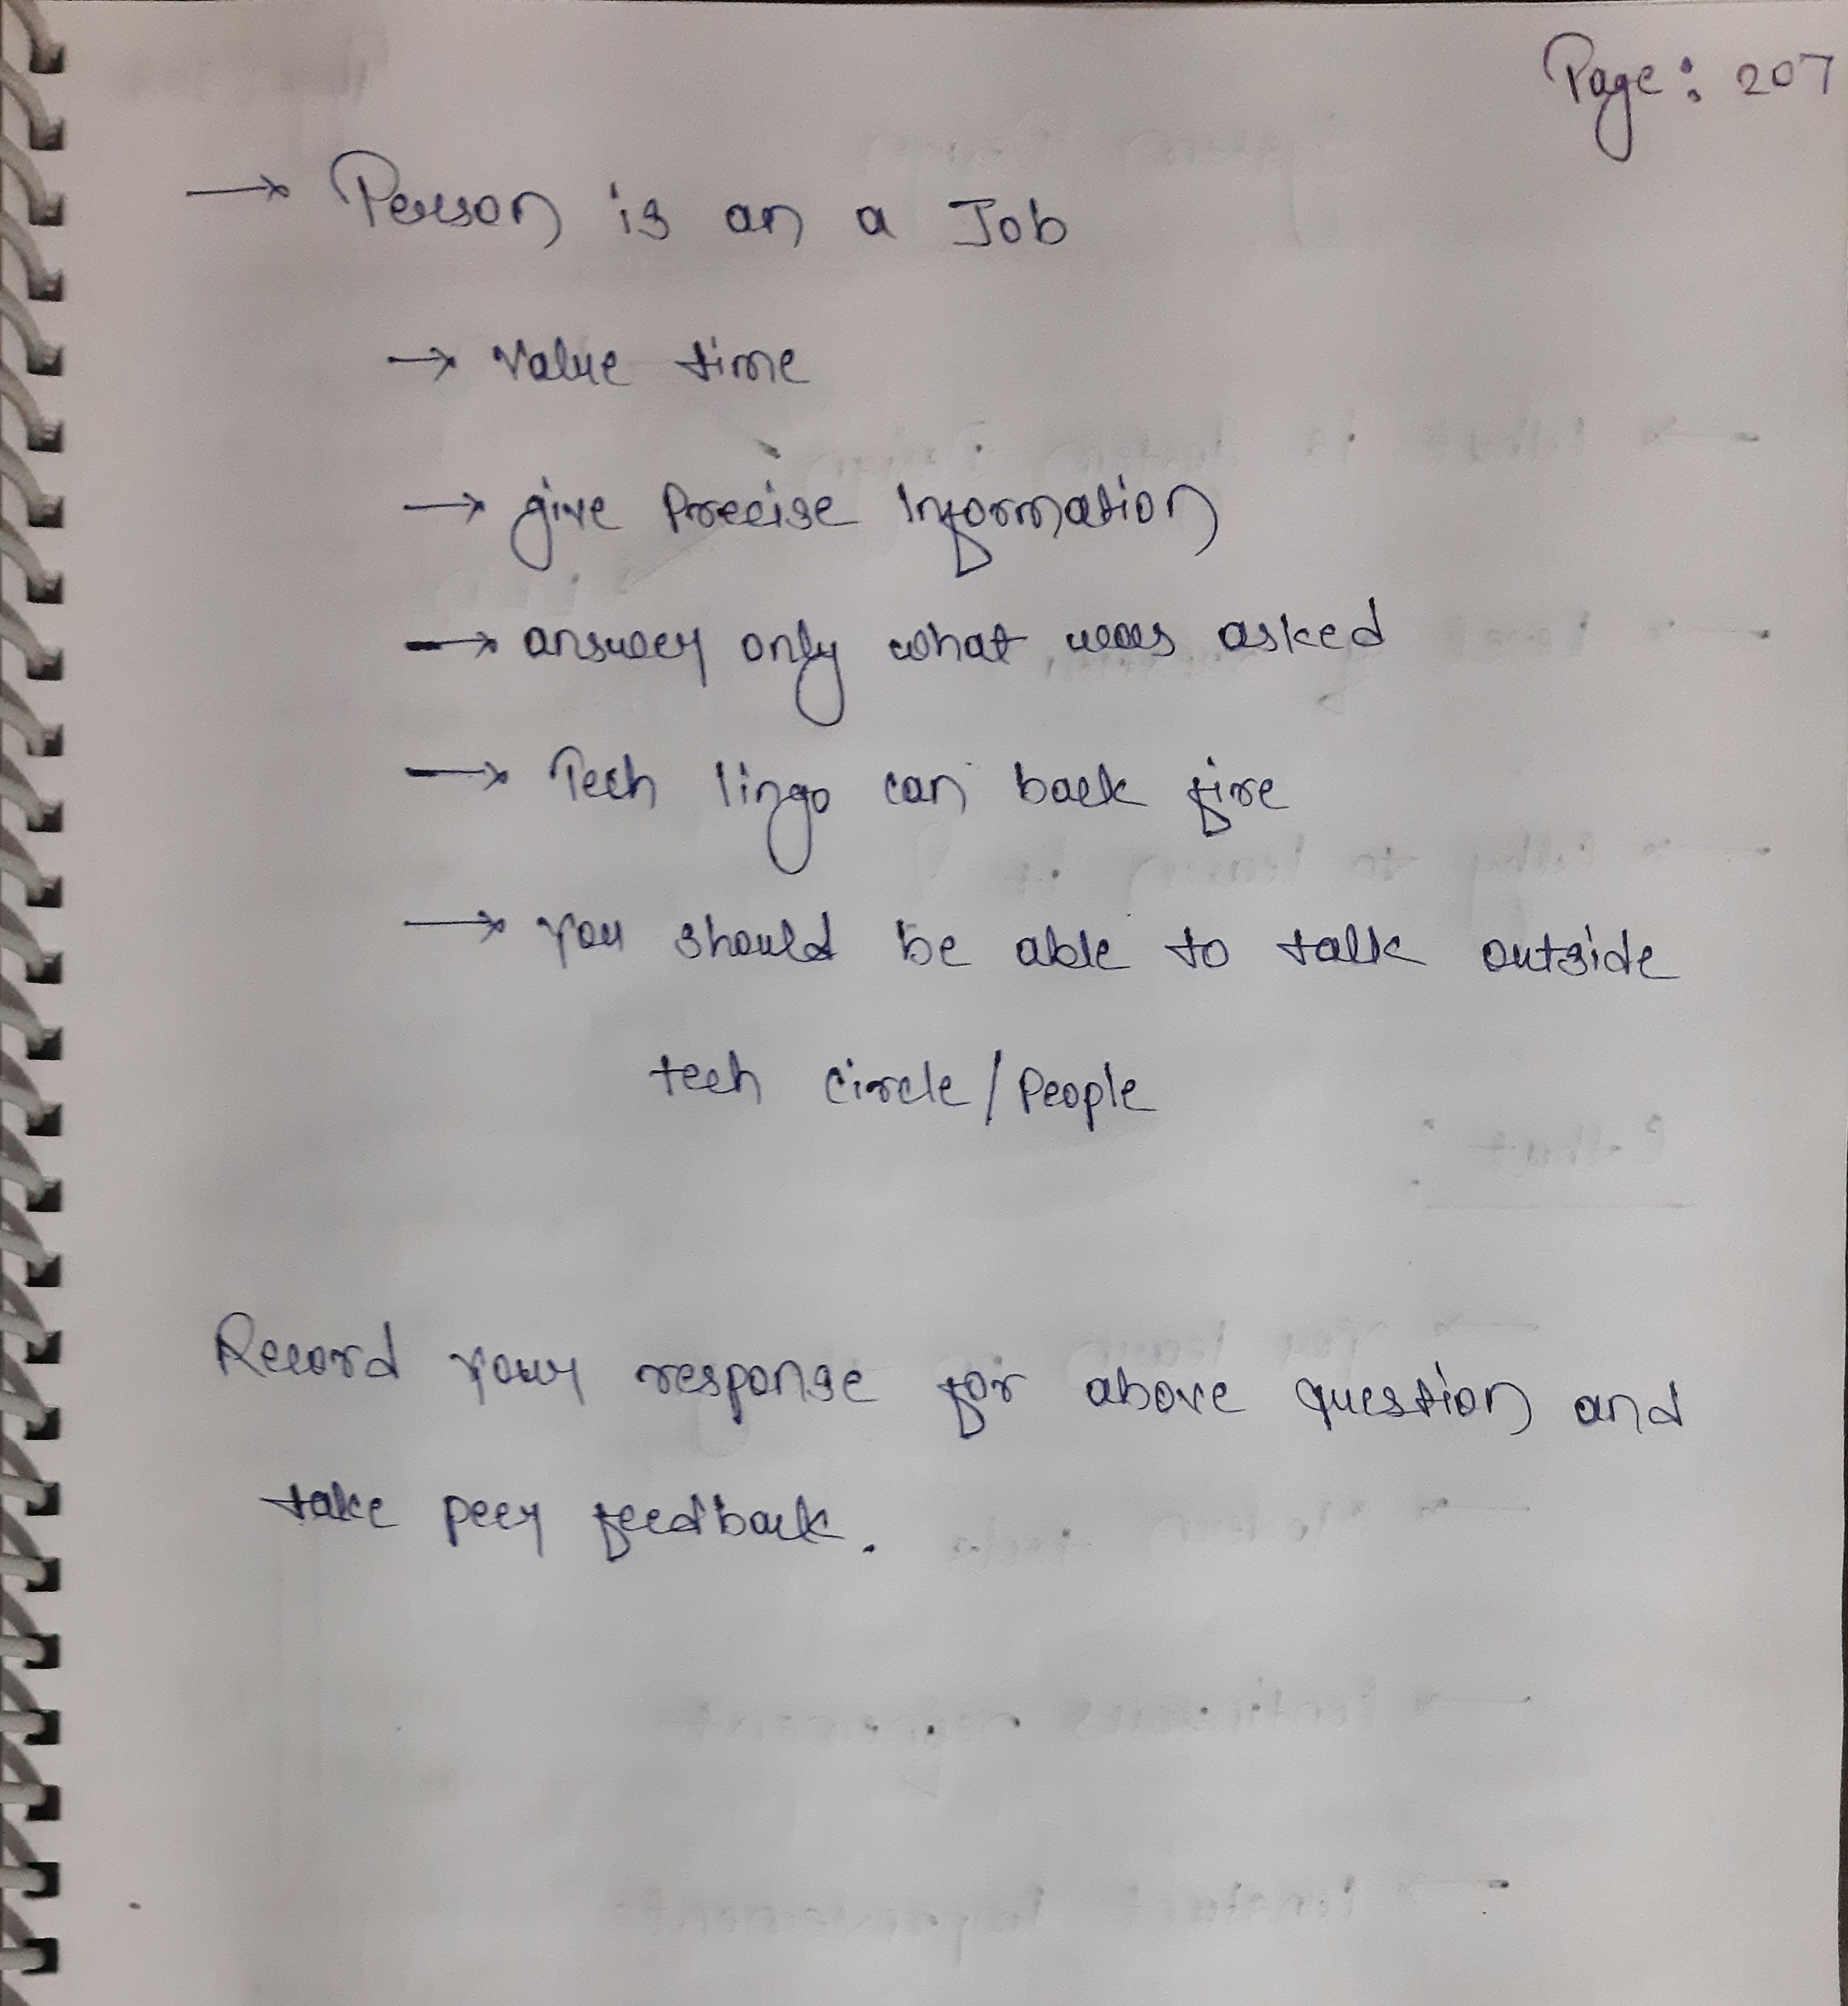 Page: 207
→ Person is an a Job
→ Value time
→ give Precise Information
→ answer only what was asked
→ Tech lingo can back fire
→ You should be able to talk outside
tech circle/People
Record your response for above question and
take peer feedback.